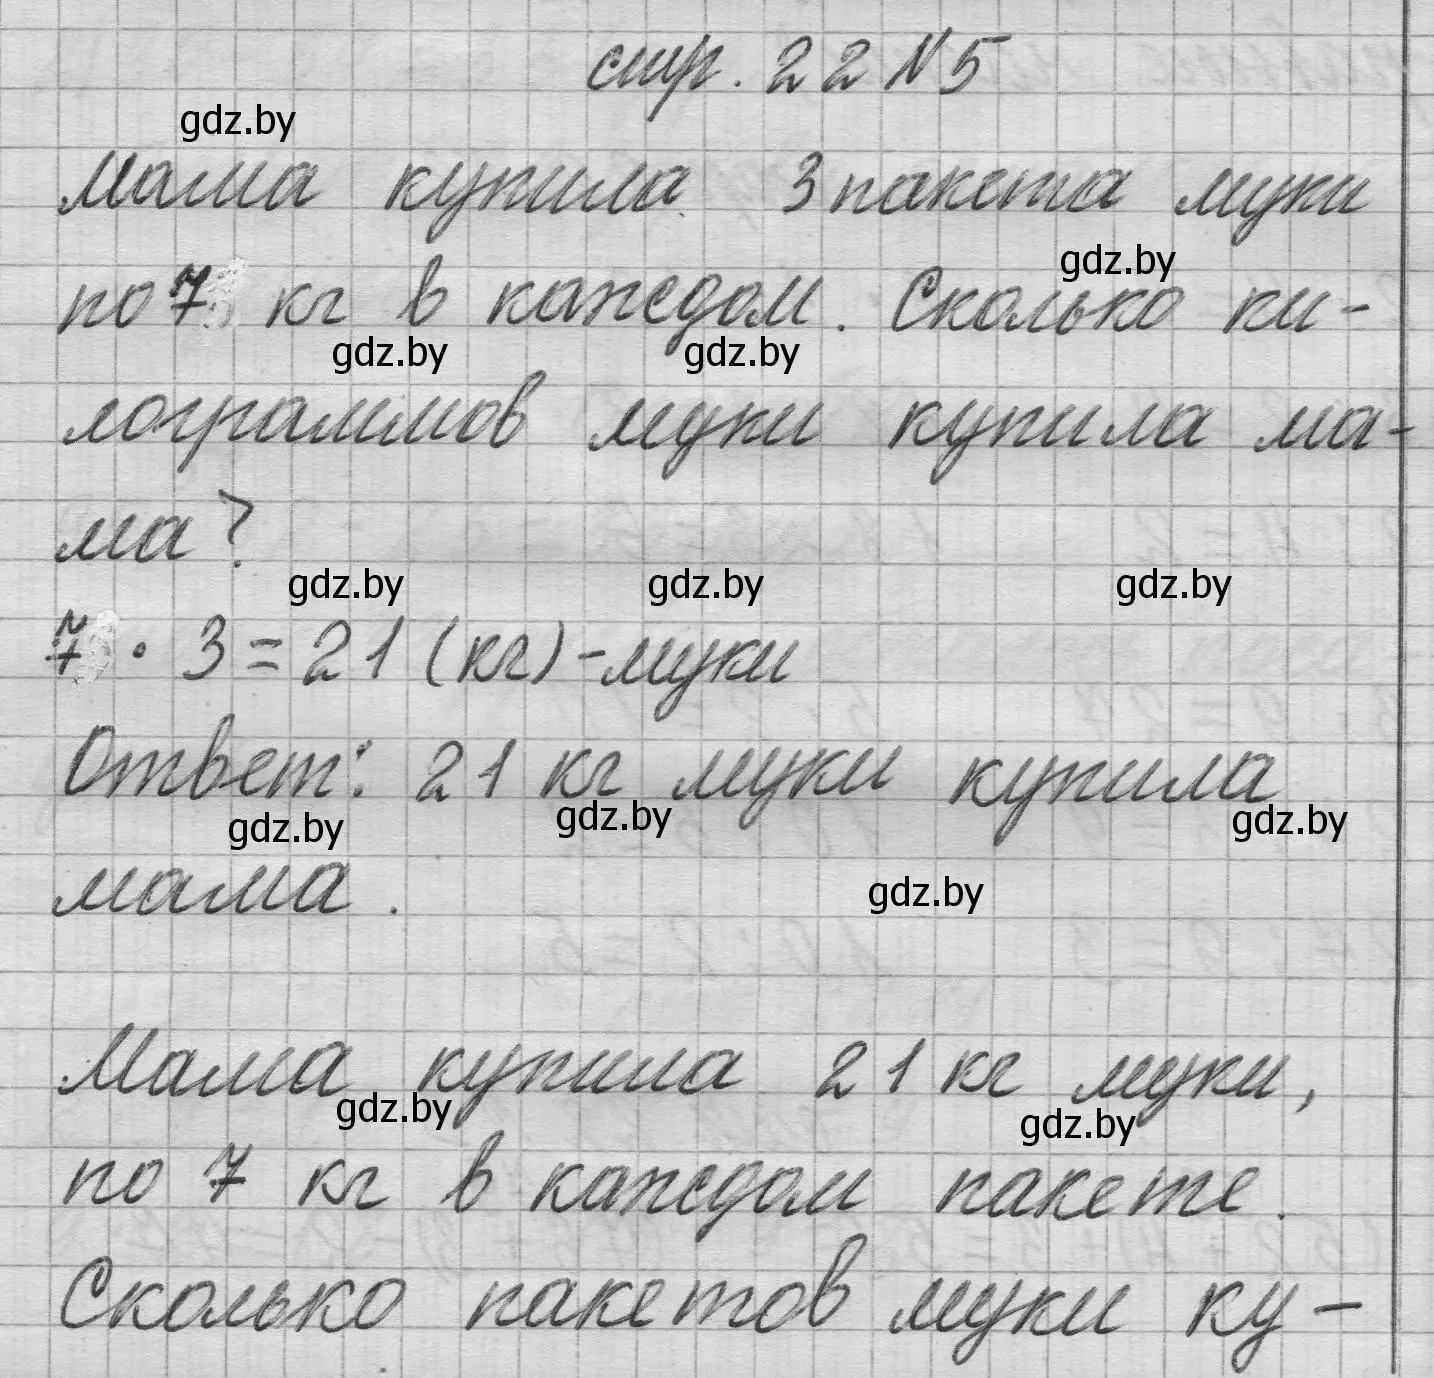 стр. 22 №5
gdz.by
Мама купила 3 пакета муки
gdz.by
по 7 кг в каждом. Сколько ки-
gdz.by gdz.by
лограммов муки купила ма-
ма?
gdz.by gdz.by gdz.by
7 · 3 = 21 (кг) - муки
Ответ: 21 кг муки купила
gdz.by gdz.by gdz.by
мама.
gdz.by
Мама купила 21 кг муки,
gdz.by gdz.by
по 7 кг в каждом пакете.
Сколько пакетов муки ку-